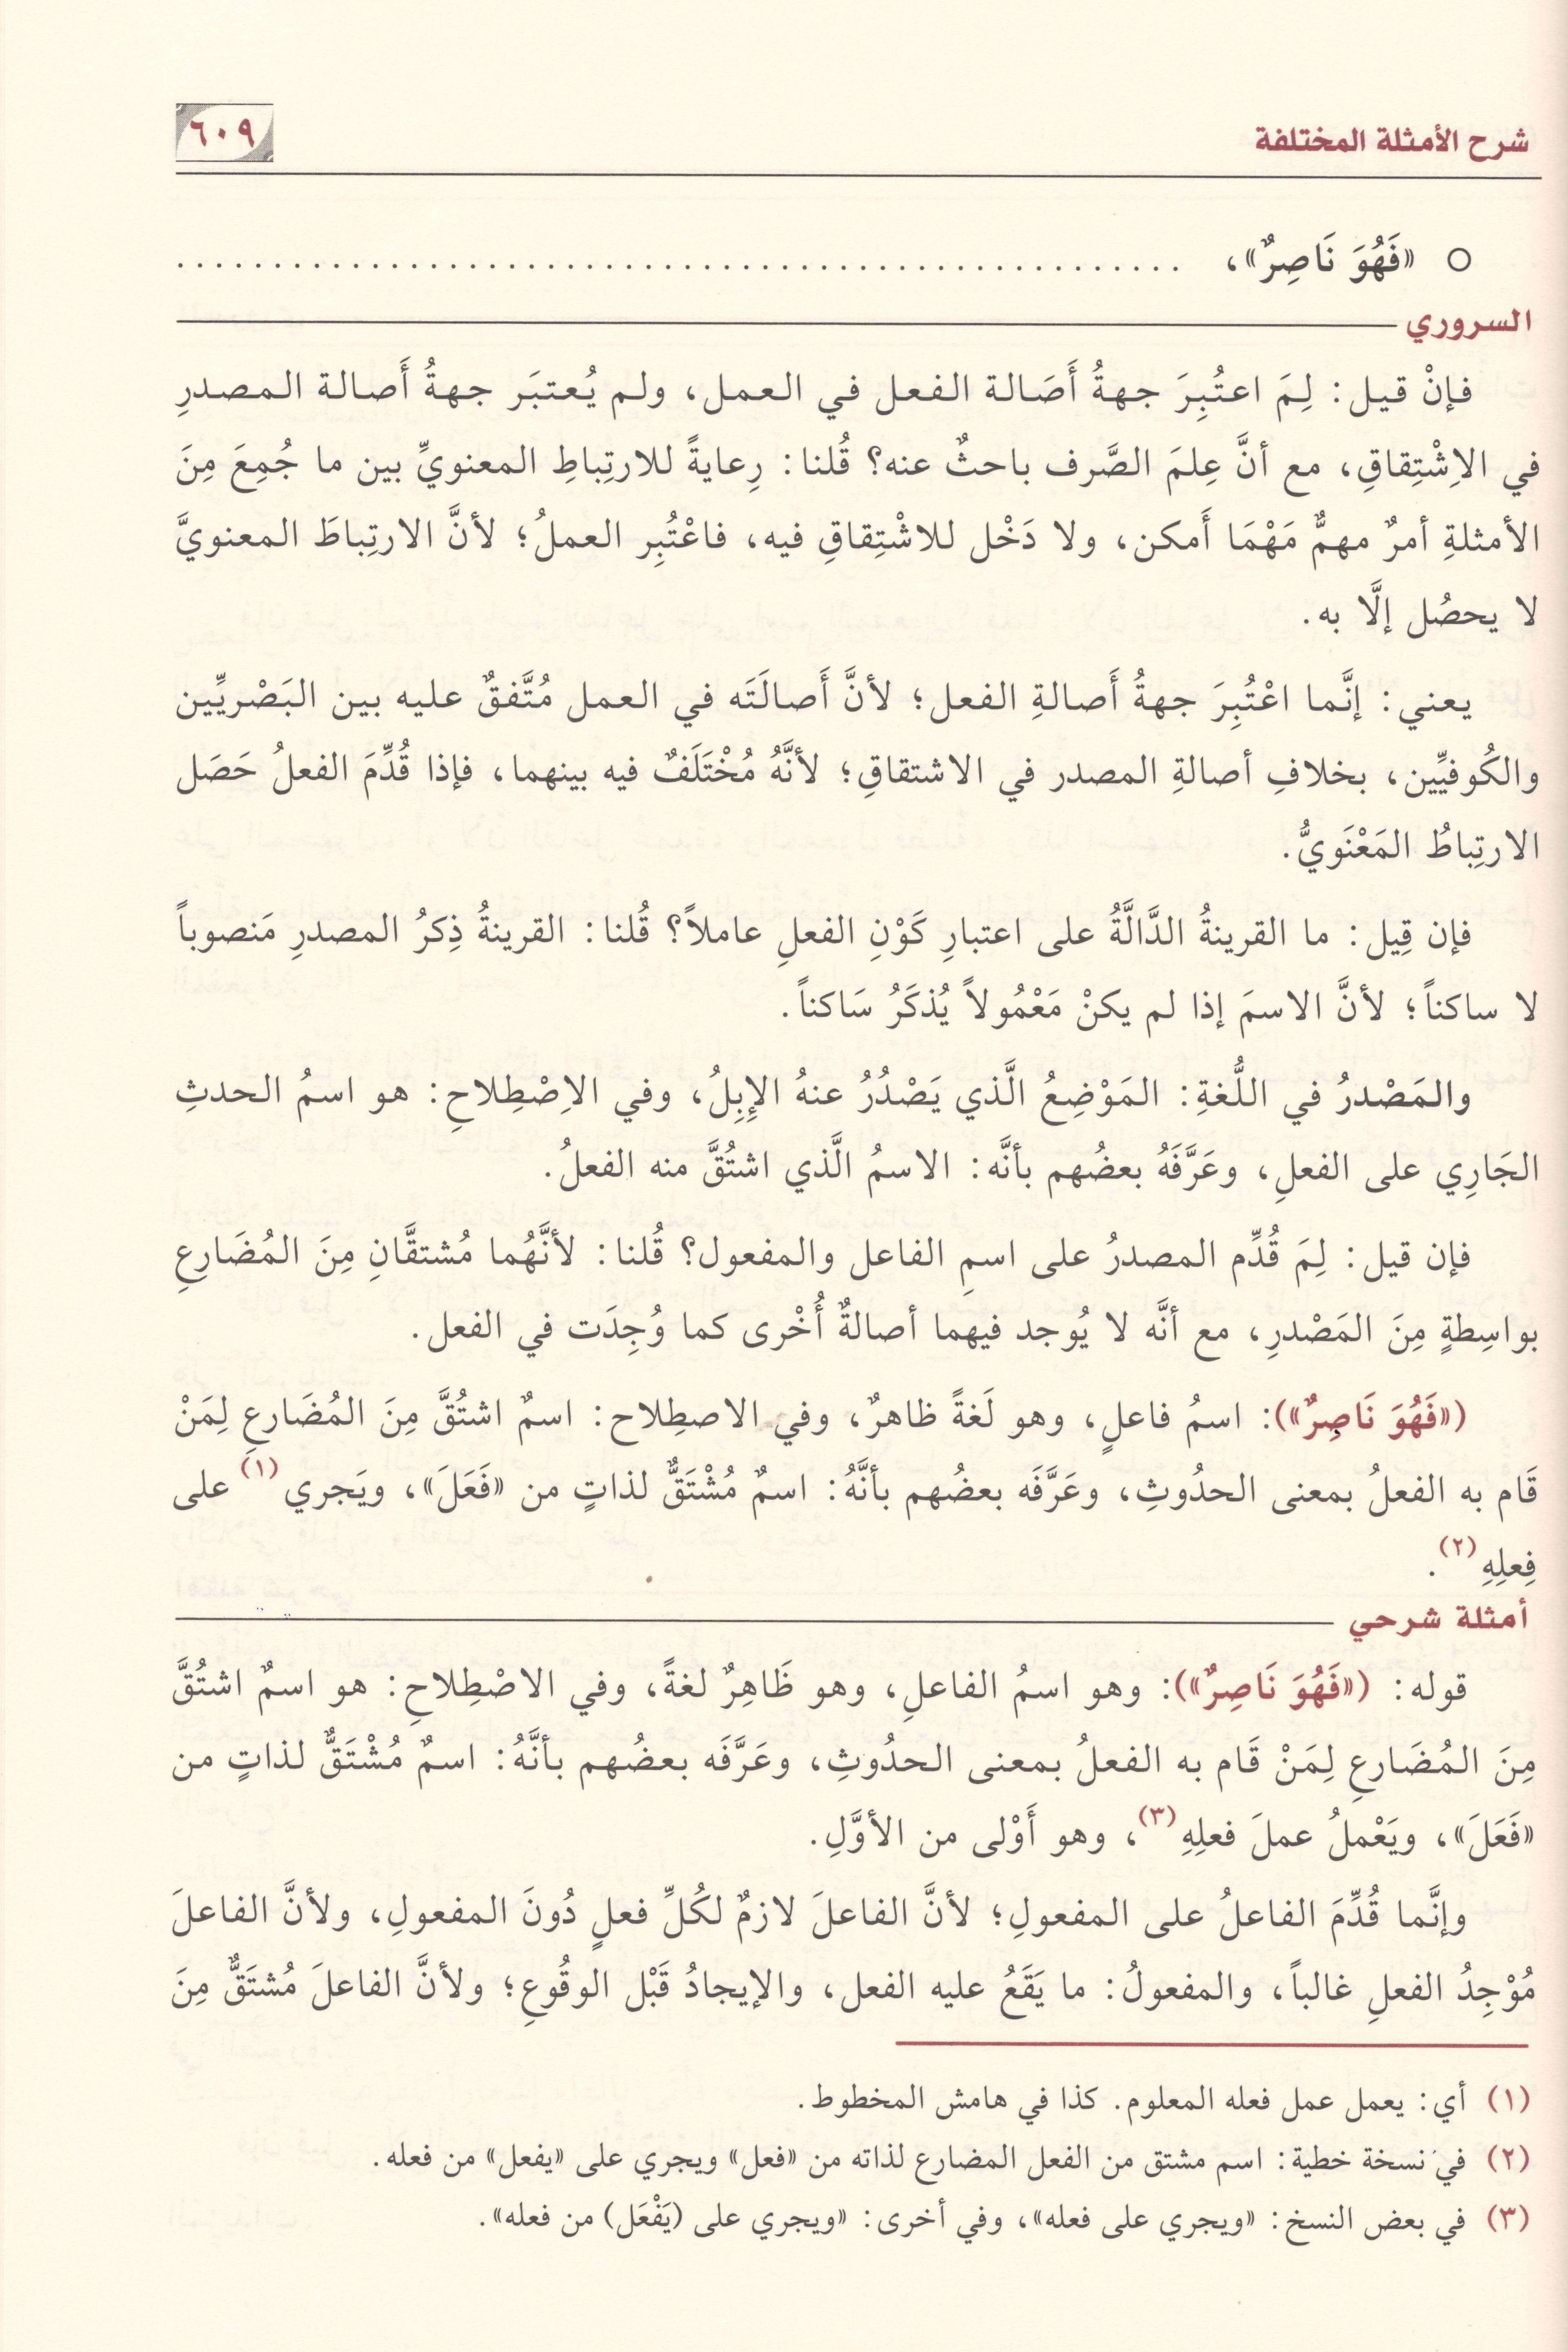 شرح الأمثلة المختلفة
٦٠٩
○ «فَهُوَ نَاصِرٌ»، . . . . . . . . . . . . . . . . . . . . . . . . . . . . . . . . . . . . . . . . . . . . . . . . .
السروري
فإنْ قيل: لِمَ اعتُبِرَ جهةُ أَصَالة الفعل في العمل، ولم يُعتبَر جهةُ أَصالة المصدرِ
في الاِشْتِقاقِ، مع أنَّ عِلمَ الصَّرف باحثٌ عنه؟ قُلنا: رِعايةً للارتِباطِ المعنويِّ بين ما جُمِعَ مِنَ
الأمثلةِ أمرٌ مهمٌّ مَهْمَا أَمكن، ولا دَخْل للاشْتِقاقِ فيه، فاعْتُبِر العملُ؛ لأنَّ الارتِباطَ المعنويَّ
لا يحصُل إلَّا به.
يعني: إنَّما اعْتُبِرَ جهةُ أَصالةِ الفعل؛ لأنَّ أَصالَتَه في العمل مُتَّفقٌ عليه بين البَصْريِّين
والكُوفيِّين، بخلافِ أصالةِ المصدر في الاشتقاقِ؛ لأنَّهُ مُخْتَلَفٌ فيه بينهما، فإذا قُدِّمَ الفعلُ حَصَل
الارتِباطُ المَعْنَويُّ.
فإن قِيل: ما القرينةُ الدَّالَّةُ على اعتبارِ كَوْنِ الفعلِ عاملاً؟ قُلنا: القرينةُ ذِكرُ المصدرِ مَنصوباً
لا ساكناً؛ لأنَّ الاسمَ إذا لم يكنْ مَعْمُولاً يُذكَرُ سَاكناً.
والمَصْدرُ في اللُّغةِ: المَوْضِعُ الَّذي يَصْدُرُ عنهُ الإِبِلُ، وفي الاِصْطِلاحِ: هو اسمُ الحدثِ
الجَارِي على الفعلِ، وعَرَّفَهُ بعضُهم بأنَّه: الاسمُ الَّذي اشتُقَّ منه الفعلُ.
فإن قيل: لِمَ قُدِّم المصدرُ على اسمِ الفاعل والمفعول؟ قُلنا: لأنَّهُما مُشتقَّانِ مِنَ المُضَارعِ
بواسِطةٍ مِنَ المَصْدرِ، مع أنَّه لا يُوجد فيهما أصالةٌ أُخْرى كما وُجِدَت في الفعل.
(«فَهُوَ نَاصِرٌ»): اسمُ فاعلٍ، وهو لَغةً ظاهرٌ، وفي الاصطِلاح: اسمٌ اشتُقَّ مِنَ المُضَارعِ لِمَنْ
قَام به الفعلُ بمعنى الحدُوثِ، وعَرَّفَه بعضُهم بأنَّهُ: اسمٌ مُشْتَقٌّ لذاتٍ من «فَعَلَ»، ويَجري(١) على
فِعلِهِ(٢).
أمثلة شرحي
قوله: («فَهُوَ نَاصِرٌ»): وهو اسمُ الفاعلِ، وهو ظَاهِرٌ لغةً، وفي الاصْطِلاحِ: هو اسمٌ اشتُقَّ
مِنَ المُضَارعِ لِمَنْ قَام به الفعلُ بمعنى الحدُوثِ، وعَرَّفَه بعضُهم بأنَّهُ: اسمٌ مُشْتَقٌّ لذاتٍ من
«فَعَلَ»، ويَعْملُ عملَ فعلِهِ(٣)، وهو أَوْلى من الأوَّلِ.
وإنَّما قُدِّمَ الفاعلُ على المفعولِ؛ لأنَّ الفاعلَ لازمٌ لكُلِّ فعلٍ دُونَ المفعولِ، ولأنَّ الفاعلَ
مُوْجِدُ الفعلِ غالباً، والمفعولُ: ما يَقَعُ عليه الفعل، والإيجادُ قَبْل الوقُوعِ؛ ولأنَّ الفاعلَ مُشتَقٌّ مِنَ
(١) أي: يعمل عمل فعله المعلوم. كذا في هامش المخطوط.
(٢) في نسخة خطية: اسم مشتق من الفعل المضارع لذاته من «فعل» ويجري على «يفعل» من فعله.
(٣) في بعض النسخ: «ويجري على فعله»، وفي أخرى: «ويجري على (يَفْعَل) من فعله».